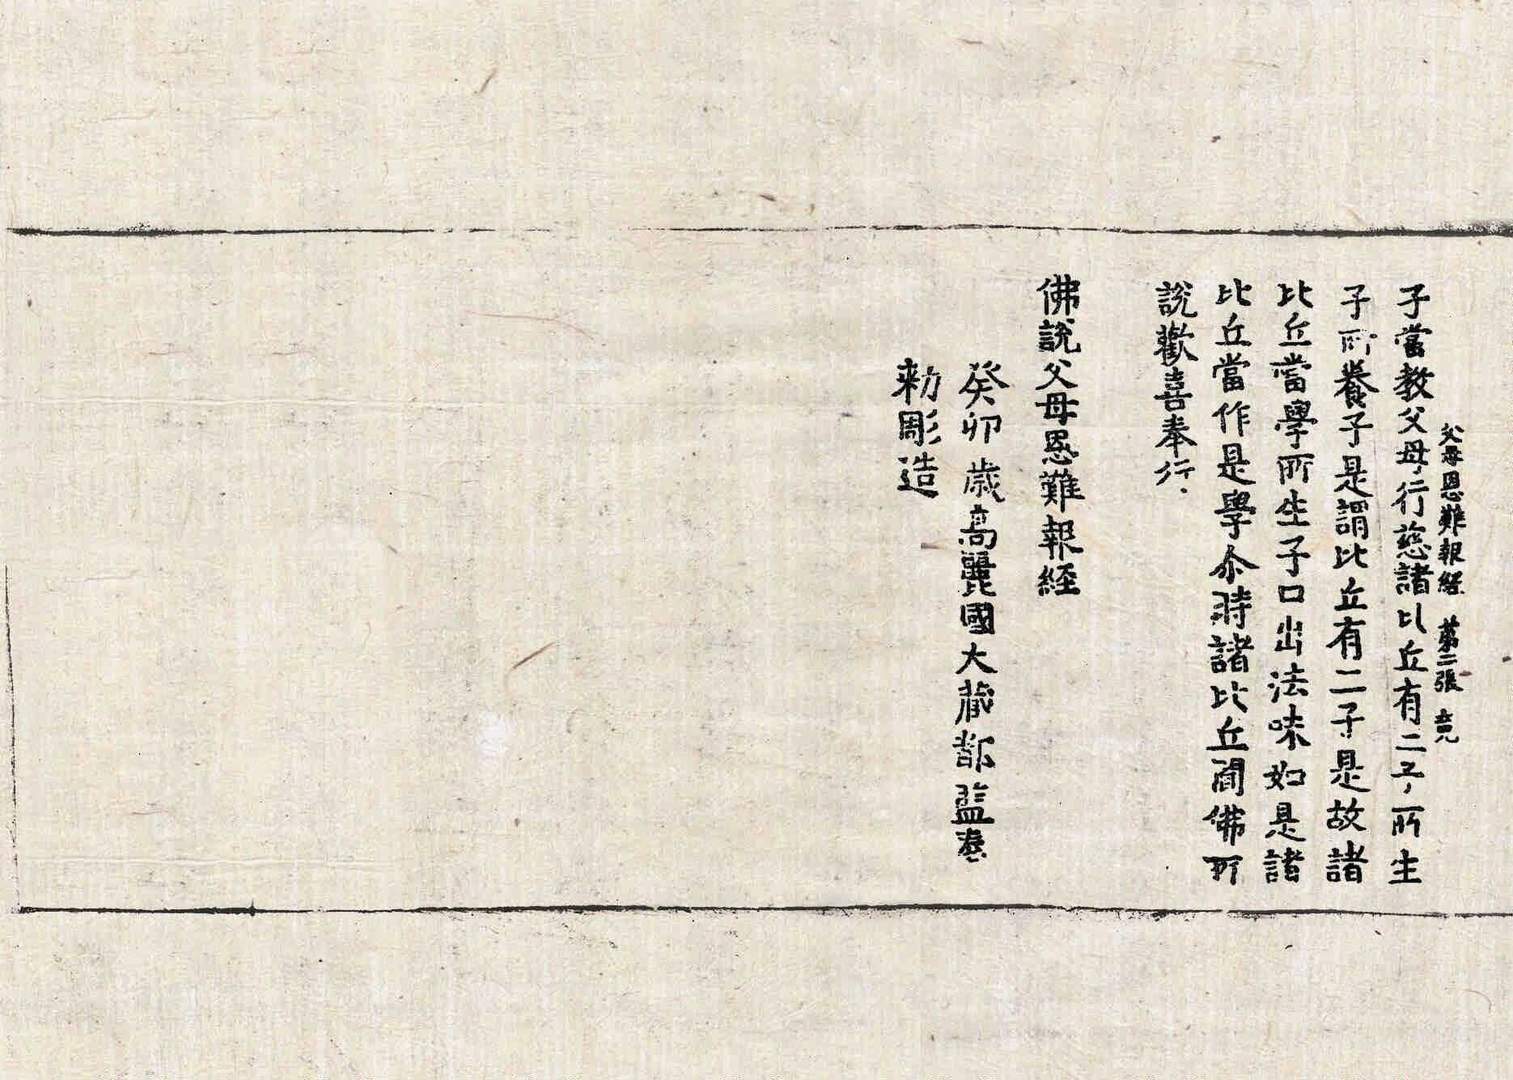 父母恩難報經 第二張 竟
子當教父母行慈諸比丘有二子所生
子所養子是謂比丘有二子是故諸
比丘當學所生子口出法味如是諸
比丘當作是學尒時諸比丘聞佛所
說歡喜奉行
佛說父母恩難報経
癸卯歳高麗國大蔵都監奉
勅彫造